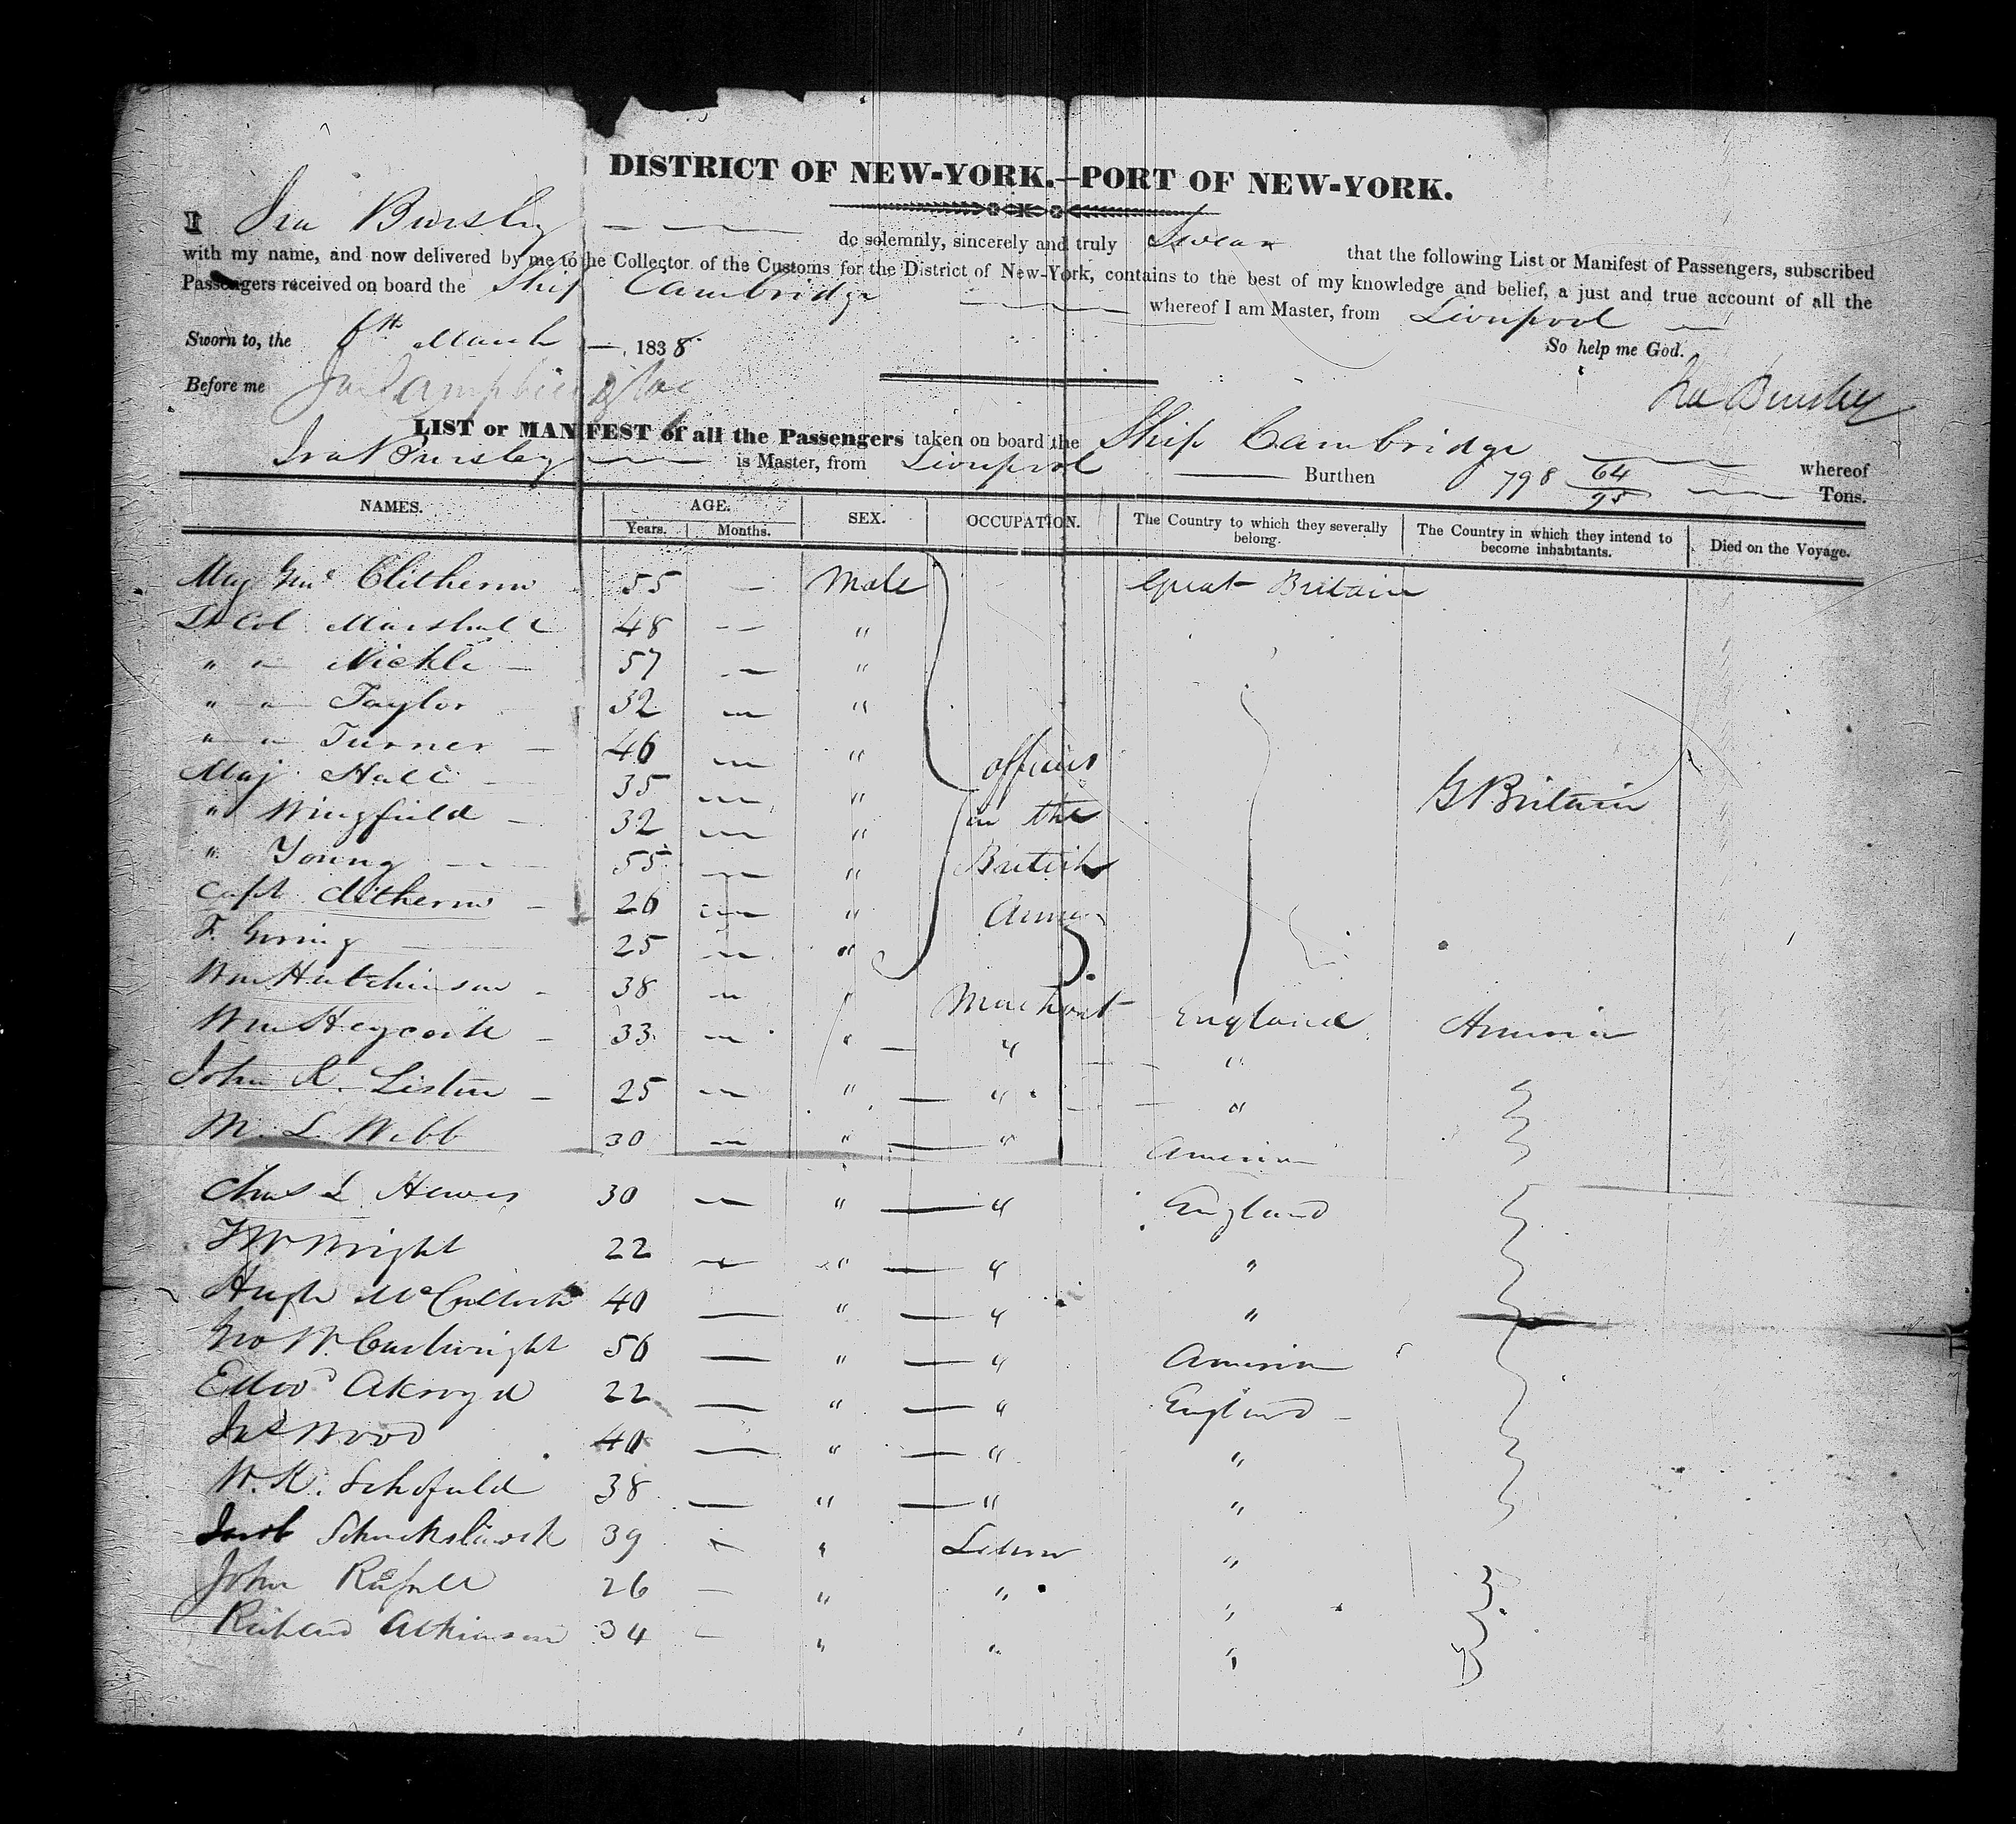 DISTRICT OF NEW-YORK.—PORT OF NEW-YORK.
I Ira Bursley do solemnly, sincerely and truly Swear that the following List or Manifest of Passengers, subscribed
with my name, and now delivered by me to the Collector of the Customs for the District of New-York, contains to the best of my knowledge and belief, a just and true account of all the
Passengers received on board the Ship Cambridge whereof I am Master, from Liverpool
So help me God.
Sworn to, the 6th March 1838
Before me
Ira Bursley
LIST or MANIFEST of all the Passengers taken on board the Ship Cambridge whereof
Ira Bursley is Master, from Liverpool Burthen 798 64/95 Tons.
NAMES. AGE. Years. Months. SEX. OCCUPATION. The Country to which they severally belong. The Country in which they intend to become inhabitants. Died on the Voyage.
Maj Genl Clitherow 55 — Male Great Britain
Lt Col Marshall 48 — "
" " Nickle 57 — "
" " Taylor 32 — "
" " Turner 46 — " officers
Maj Hall 35 — " G Britain
" Wingfield 32 — " in the
" Young 55 — " British
Capt Clitherow 26 — " Army
F. Goring 25 — "
Wm Hutchinson 38 — " Merchant England America
Wm Heycock 33 — " " "
John R. Liston 25 — " " "
M. L. Webb 30 — " " America
Chas L Hewes 30 — " " England
T W Wright 22 — " " "
Hugh McCulloch 40 — " " "
Geo W. Cartwright 56 — " " America
Edwd Akroyd 22 — " " England
Jas Wood 40 — " " "
W. K. Schofield 38 — " " "
Jacob 39 — " "
John Russell 26 — " " "
Richard Atkinson 34 — " " "